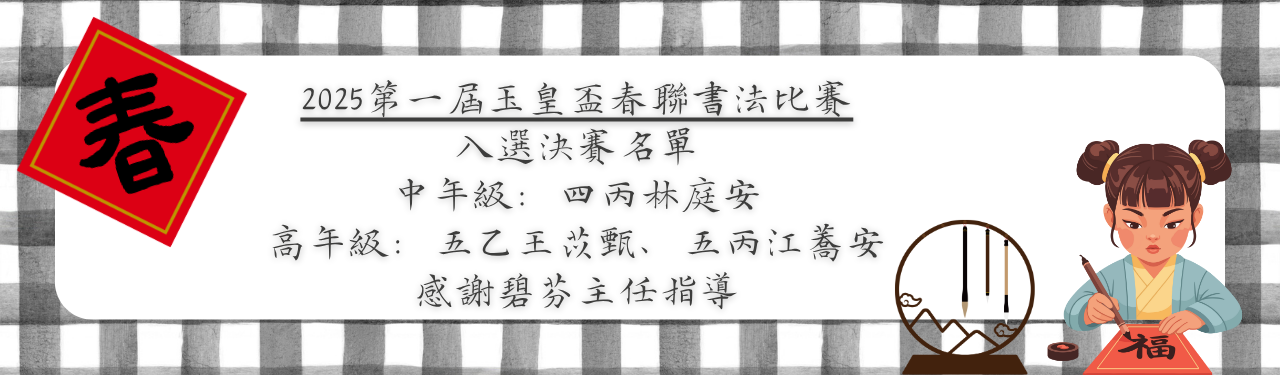 春
2025第一屆玉皇盃春聯書法比賽
入選決賽名單
中年級： 四丙林庭安
高年級： 五乙王苡甄、 五丙江蕎安
感謝碧芬主任指導
福